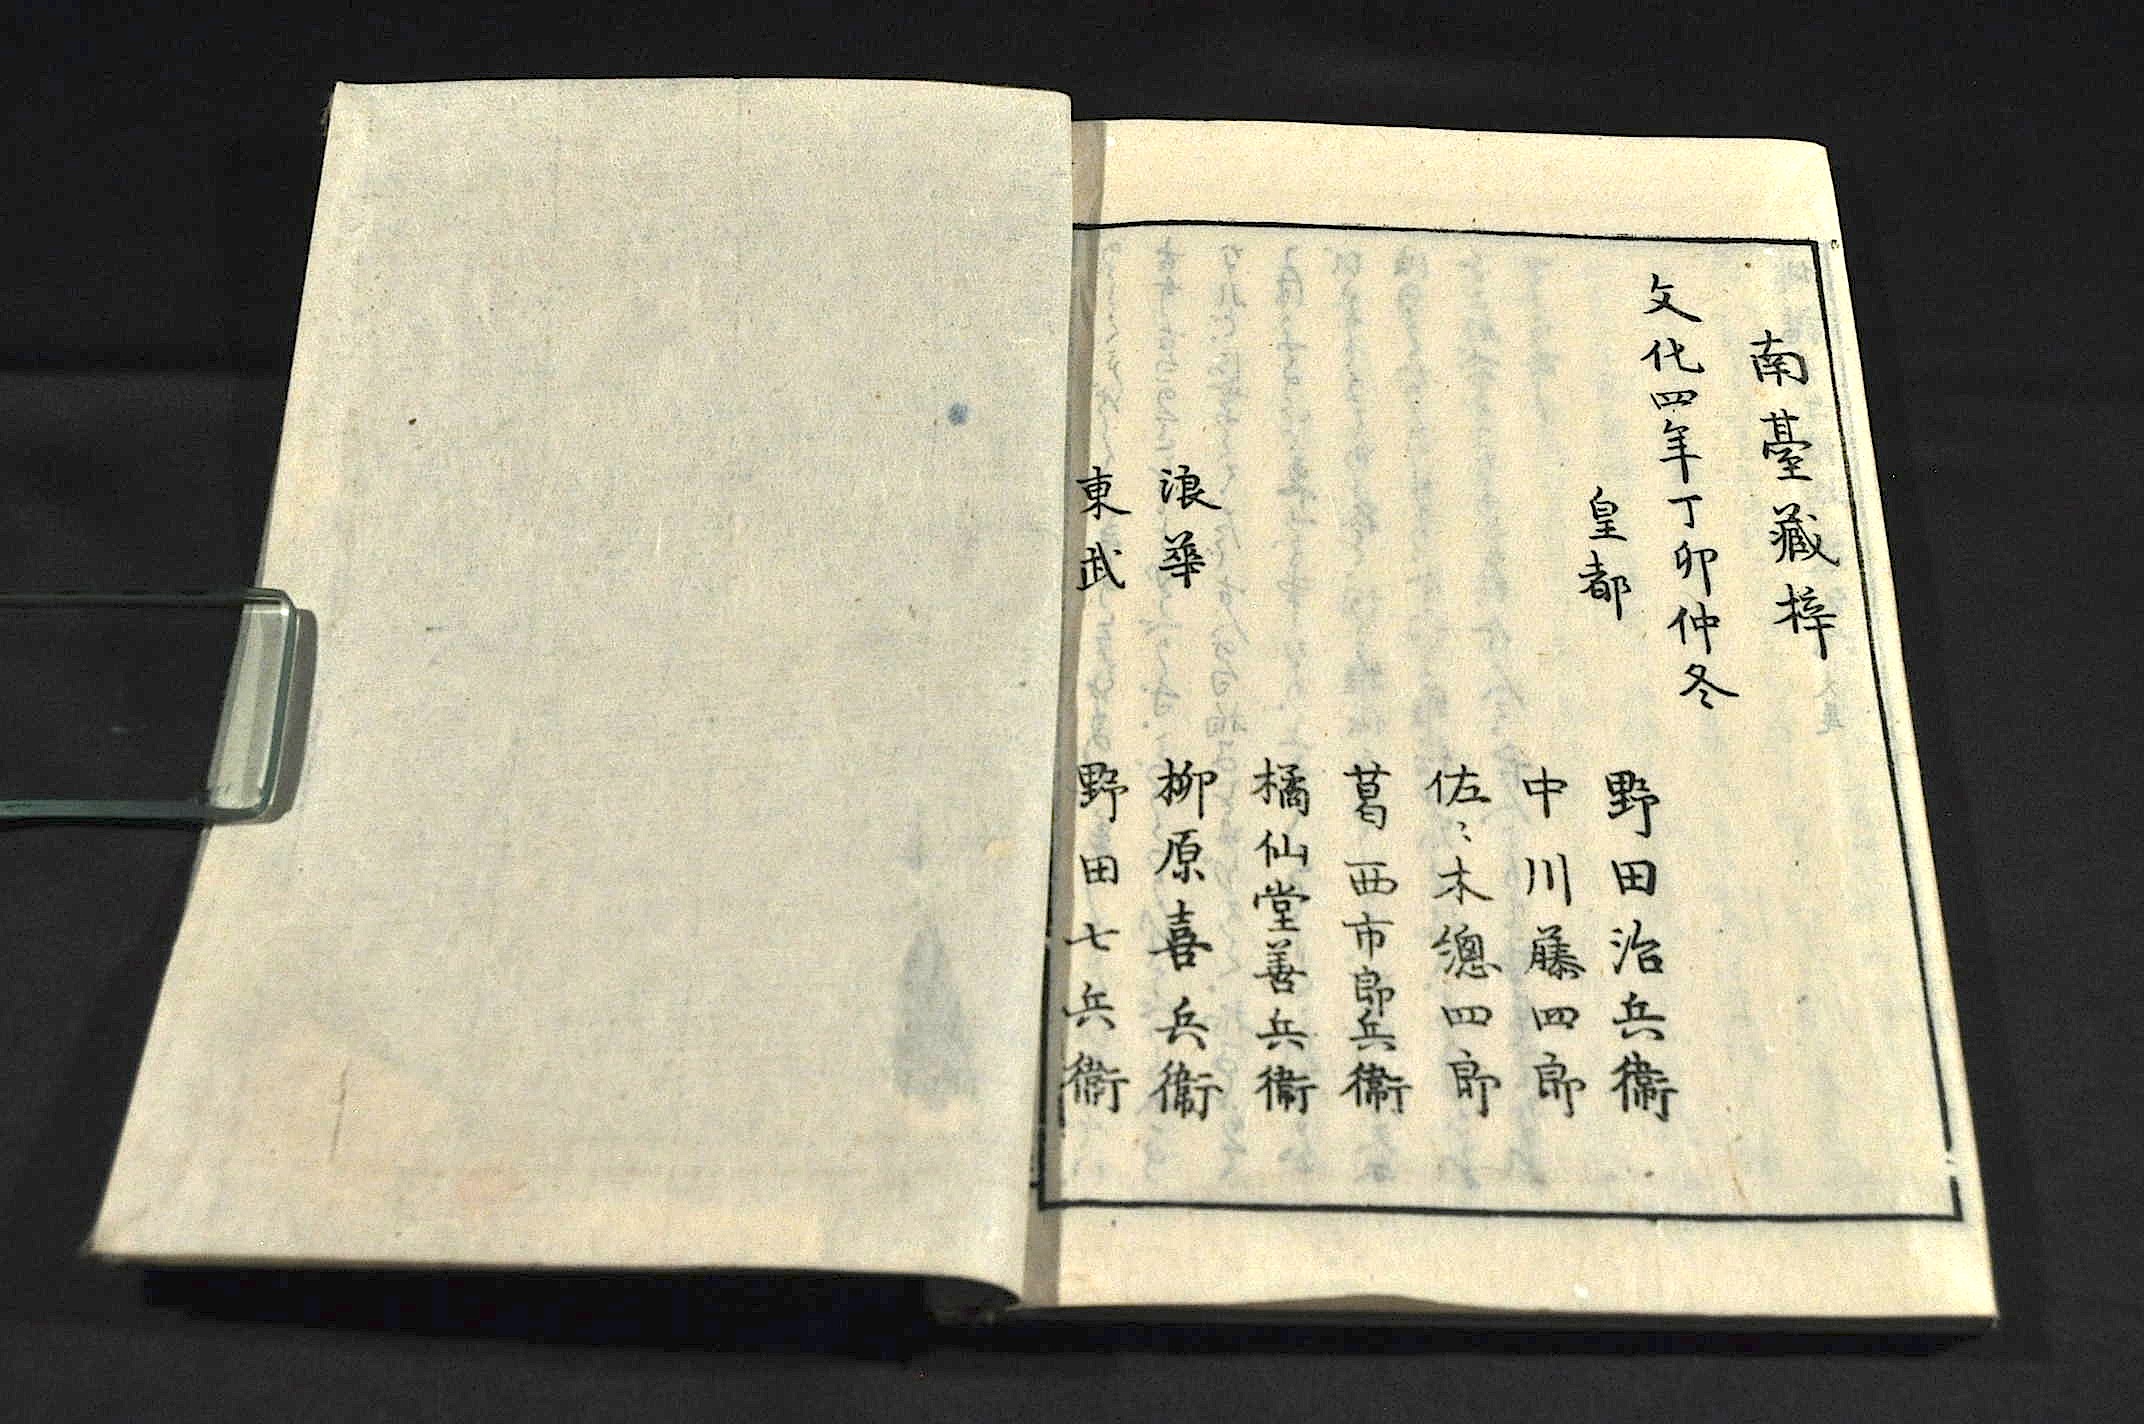 南臺藏梓
文化四年丁卯仲冬
皇都
野田治兵衞
中川藤四郎
佐〻木總四郎
葛西市郎兵衞
橘仙堂善兵衞
浪華
柳原喜兵衞
東武
野田七兵衞